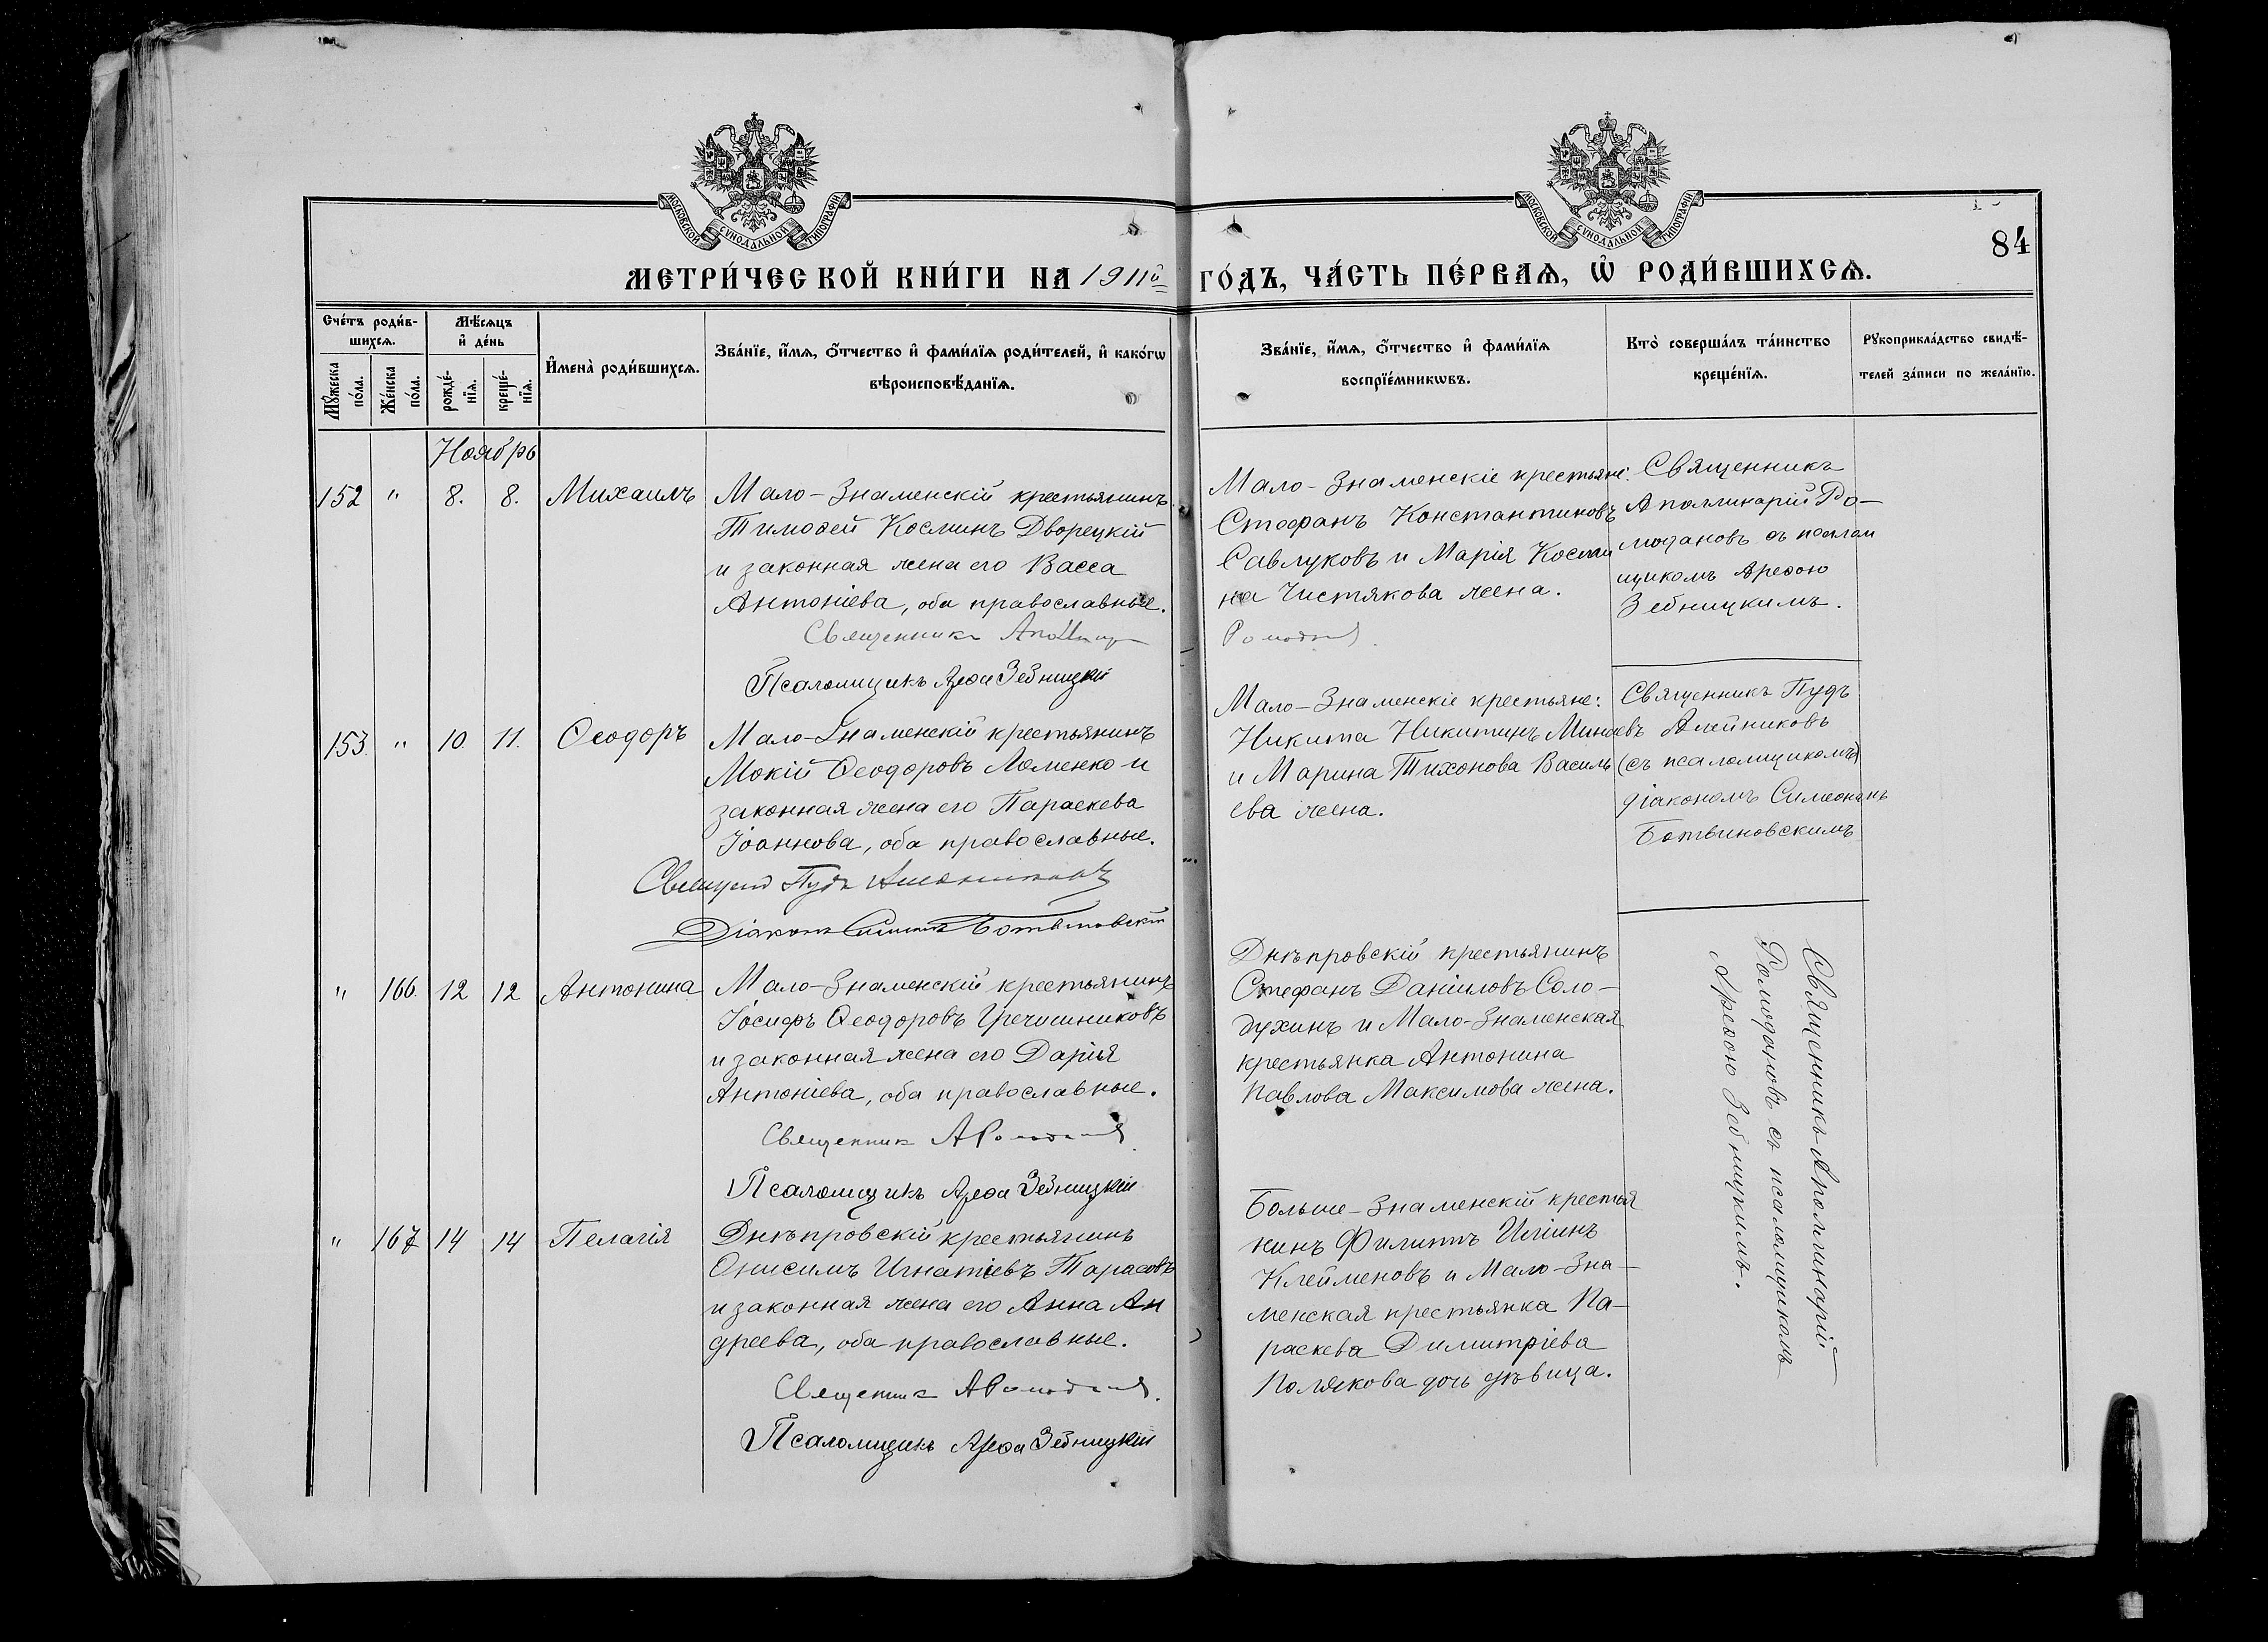 МОСКОВСКОЙ СѴНОДАЛЬНОЙ ТИПОГРАФІИ
МОСКОВСКОЙ СѴНОДАЛЬНОЙ ТИПОГРАФІИ
84
МЕТРИ́ЧЕСКОЙ КНИ́ГИ НА 1911й ГО́ДЪ, ЧА́СТЬ ПЕ́РВАѦ, Ѡ҆ РОДИ́ВШИХСѦ.
Сче́тъ роди́в-
шихсѧ.
Мꙋ́жеска по́ла.
Же́нска по́ла.
Мѣ́сѧцъ
и҆ де́нь
рожде́-
нїѧ.
креще́-
нїѧ.
И҆мена̀ роди́вшихсѧ.
Зва́нїе, и҆́мѧ, ѻ҆́тчество и҆ фами́лїѧ роди́телей, и҆ како́гѡ
вѣроисповѣ́данїѧ.
Зва́нїе, и҆́мѧ, ѻ҆́тчество и҆ фами́лїѧ
воспрїе́мникѡвъ.
Кто̀ соверша́лъ та́инство
креще́нїѧ.
Рꙋкоприкла́дство свидѣ́-
телей за́писи по жела́нїю.
Ноябрь
152 " 8. 8. Михаилъ
Мало-Знаменскій крестьянинъ
Тимоѳей Косминъ Дворецкій
и законная жена его Васса
Антоніева, оба православные.
Священникъ
Псаломщикъ Ареѳа Зебницкій
Мало-Знаменскіе крестьяне:
Стефанъ Константиновъ
Савлуковъ и Марія Косми
на Чистякова жена.
Священникъ
Аполлинарій Ро-
модановъ съ псалом
щикомъ Ареѳою
Зебницкимъ.
153. " 10. 11. Ѳеодоръ
Мало-Знаменскій крестьянинъ
Мокій Ѳеодоровъ Ломенко и
законная жена его Параскева
Іоаннова, оба православные.
Пудъ
Діаконъ Ботвиновскій
Мало-Знаменскіе крестьяне:
Никита Никитинъ Минаевъ
и Марина Тихонова Василь
ева жена.
Священникъ Пудъ
Алейниковъ
(съ псаломщикомъ)
діакономъ Симеономъ
Ботвиновскимъ
" 166. 12 12 Антонина
Мало-Знаменскій крестьянинъ
Іосифъ Ѳеодоровъ Гречишниковъ
и законная жена его Дарія
Антоніева, оба православные.
Священникъ
Псаломщикъ Ареѳа Зебницкій
Днѣпровскій крестьянинъ
Стефанъ Даніиловъ Соло-
духинъ и Мало-Знаменская
крестьянка Антонина
Павлова Максимова жена.
Священникъ Аполлинарій
Ромодановъ съ псаломщикомъ
Ареѳою Зебницкимъ.
" 167 14 14 Пелагія
Днѣпровскій крестьянинъ
Онисимъ Игнатіевъ Тарасовъ
и законная жена его Анна Ан
дреева, оба православные.
Священникъ
Псаломщикъ Ареѳа Зебницкій
Больше-Знаменскій крестья
нинъ Филиппъ Иліинъ
Клейменовъ и Мало-Зна-
менская крестьянка Па-
раскева Димитріева
Полякова дочь дѣвица.